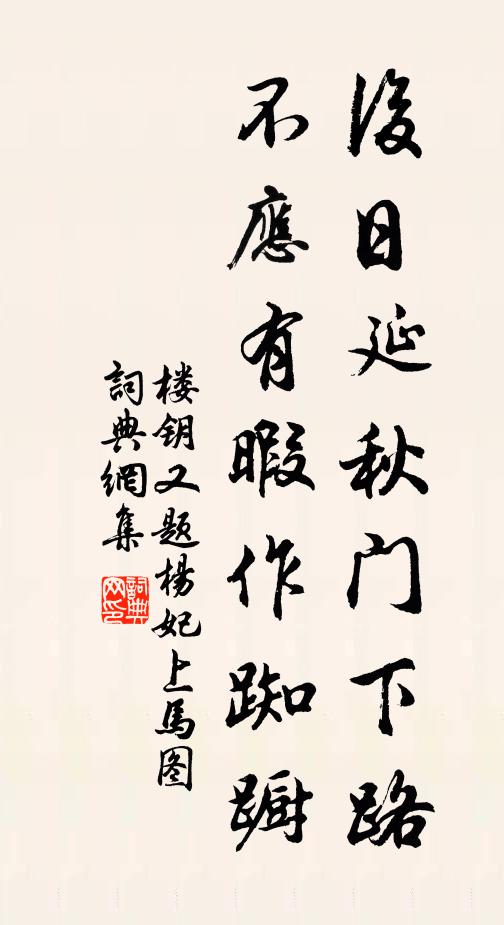 後日延秋门下路
不應有暇作踟蹰
楼钥又题楊妃上馬图
詞典網集
詞典
网印